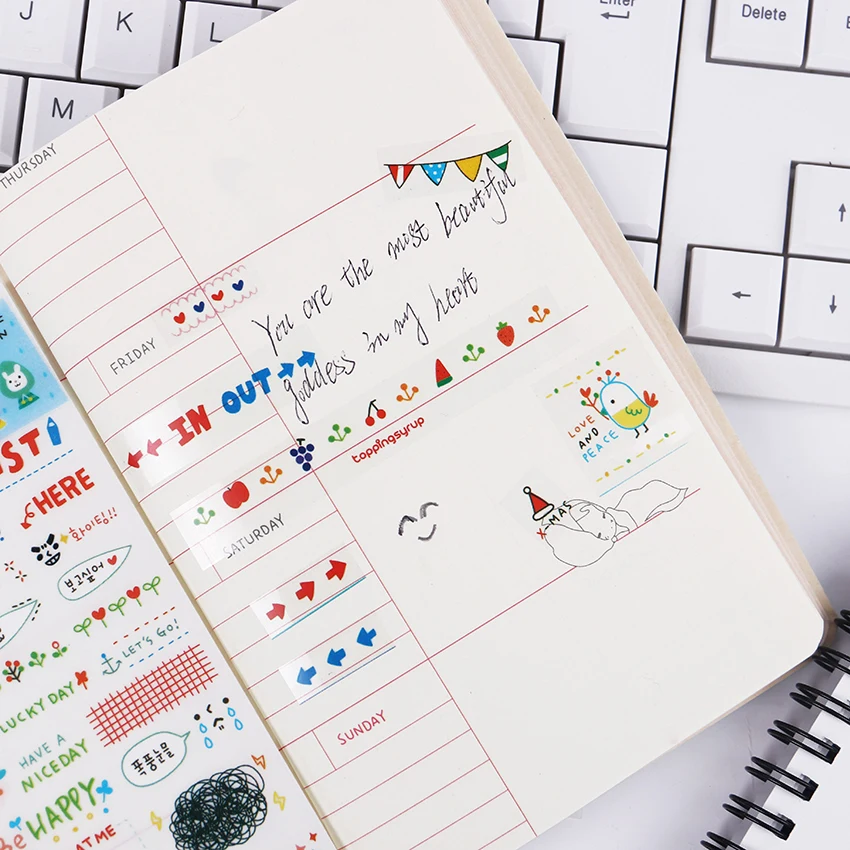 J
K
L
M
Enter
Delete
THURSDAY
You are the most beautiful
goddess in my heart
FRIDAY
IN OUT
toppingsyrup
LOVE
AND
PEACE
X-MAS
SATURDAY
SUNDAY
HERE
화이팅!!
보고싶어
LET'S GO!
LUCKY DAY
HAVE A
NICEDAY
폭풍눈물
Be HAPPY
AT ME